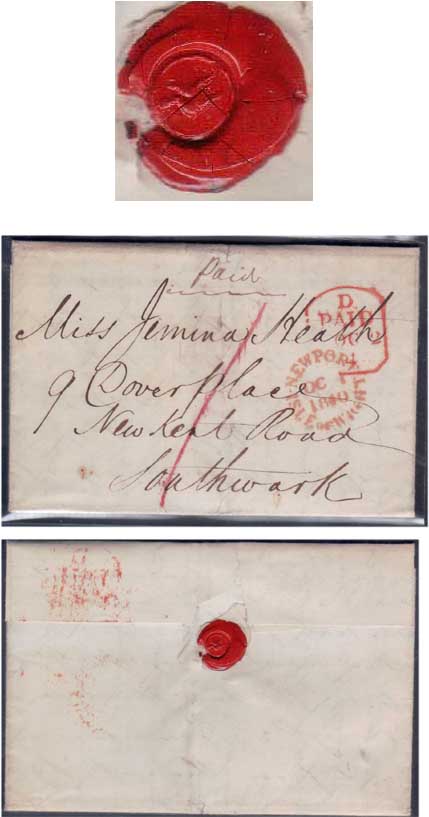 Paid
D
PAID
Miss Jemina Heath
NEWPORT
OC
1840
ISLE OF WIGHT
9 Dover Place
New Kent Road
Southwark